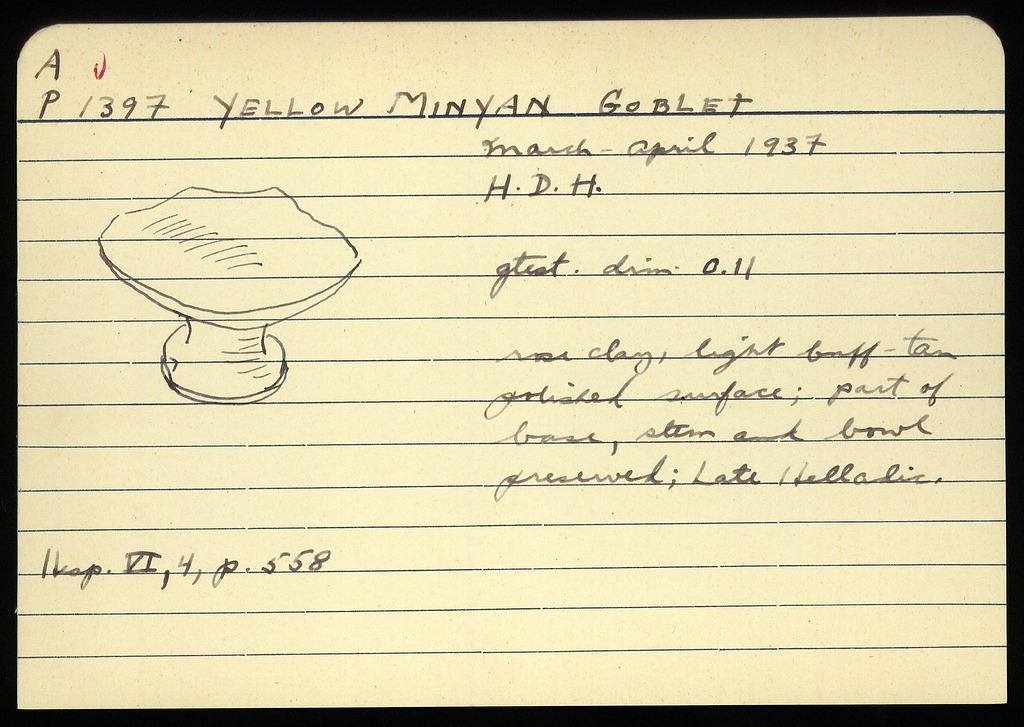 A
P 1397 YELLOW MINYAN GOBLET
March - April 1937
H. D. H.
gtest. dim. 0.11
rose clay, light buff-tan
polished surface; part of
base, stem and bowl
preserved; Late Helladic.
Hesp. VI, 4, p. 558